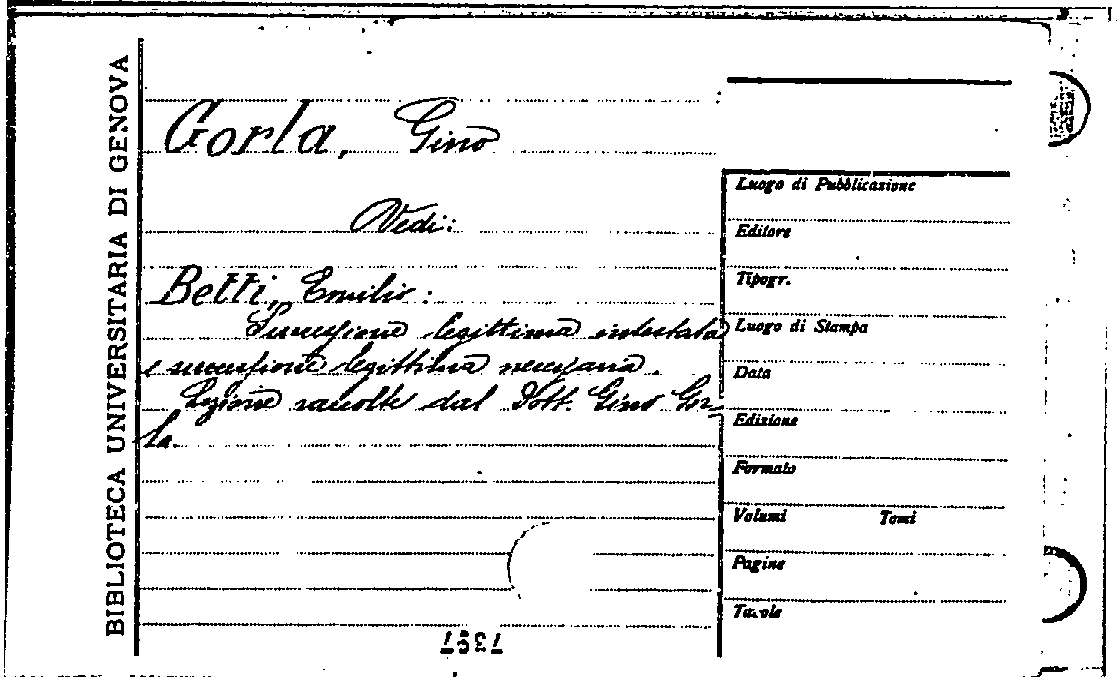 BIBLIOTECA UNIVERSITARIA DI GENOVA
Gorla, Gino
Vedi:
Betti, Emilio:
Successione legittima intestata
e successione legittima necessaria.
Lezioni raccolte dal Dott. Gino Gor=
la.
Luogo di Pubblicazione
Editore
Tipogr.
Luogo di Stampa
Data
Edizione
Formato
Volumi Tomi
Pagine
Tavole